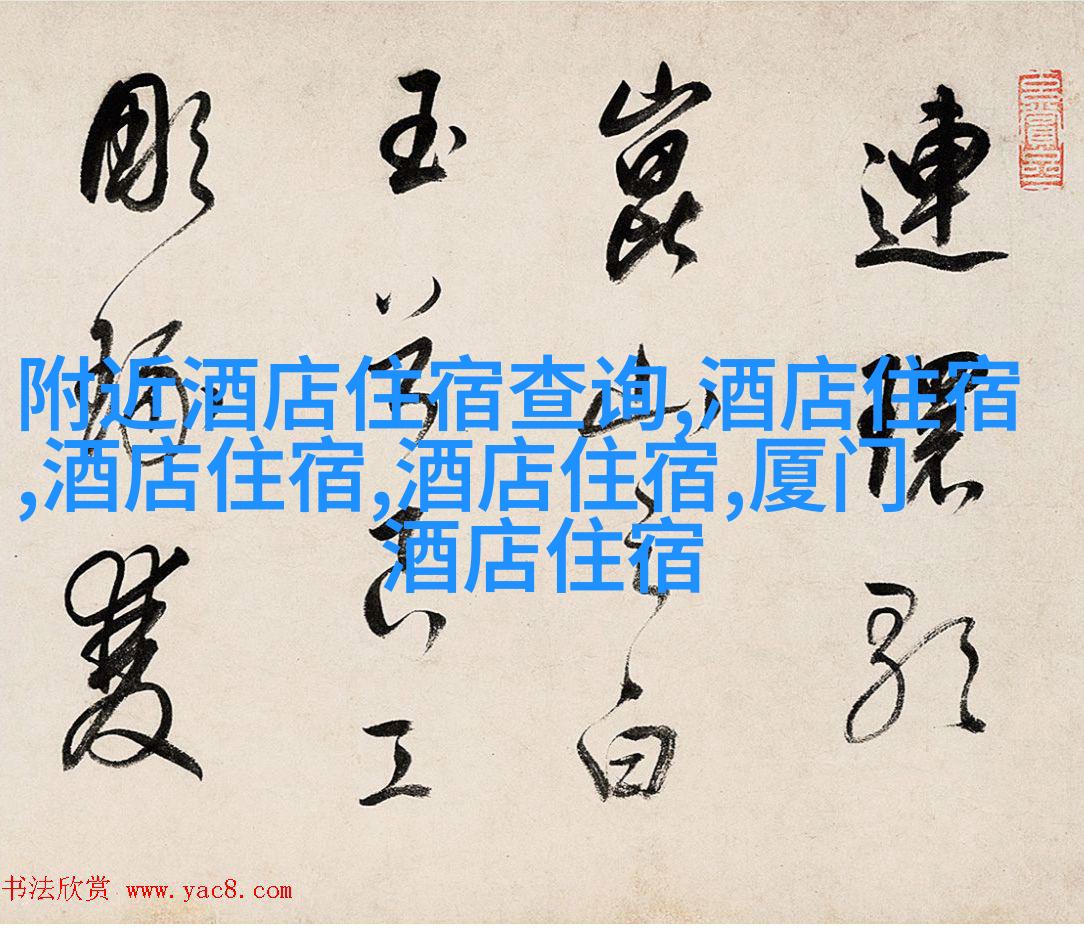 附近酒店住宿查询,酒店住宿
,酒店住宿,酒店住宿,厦门
酒店住宿
連環歌
崑山之白
玉 工
彫 雙
书法欣赏 www.yac8.com